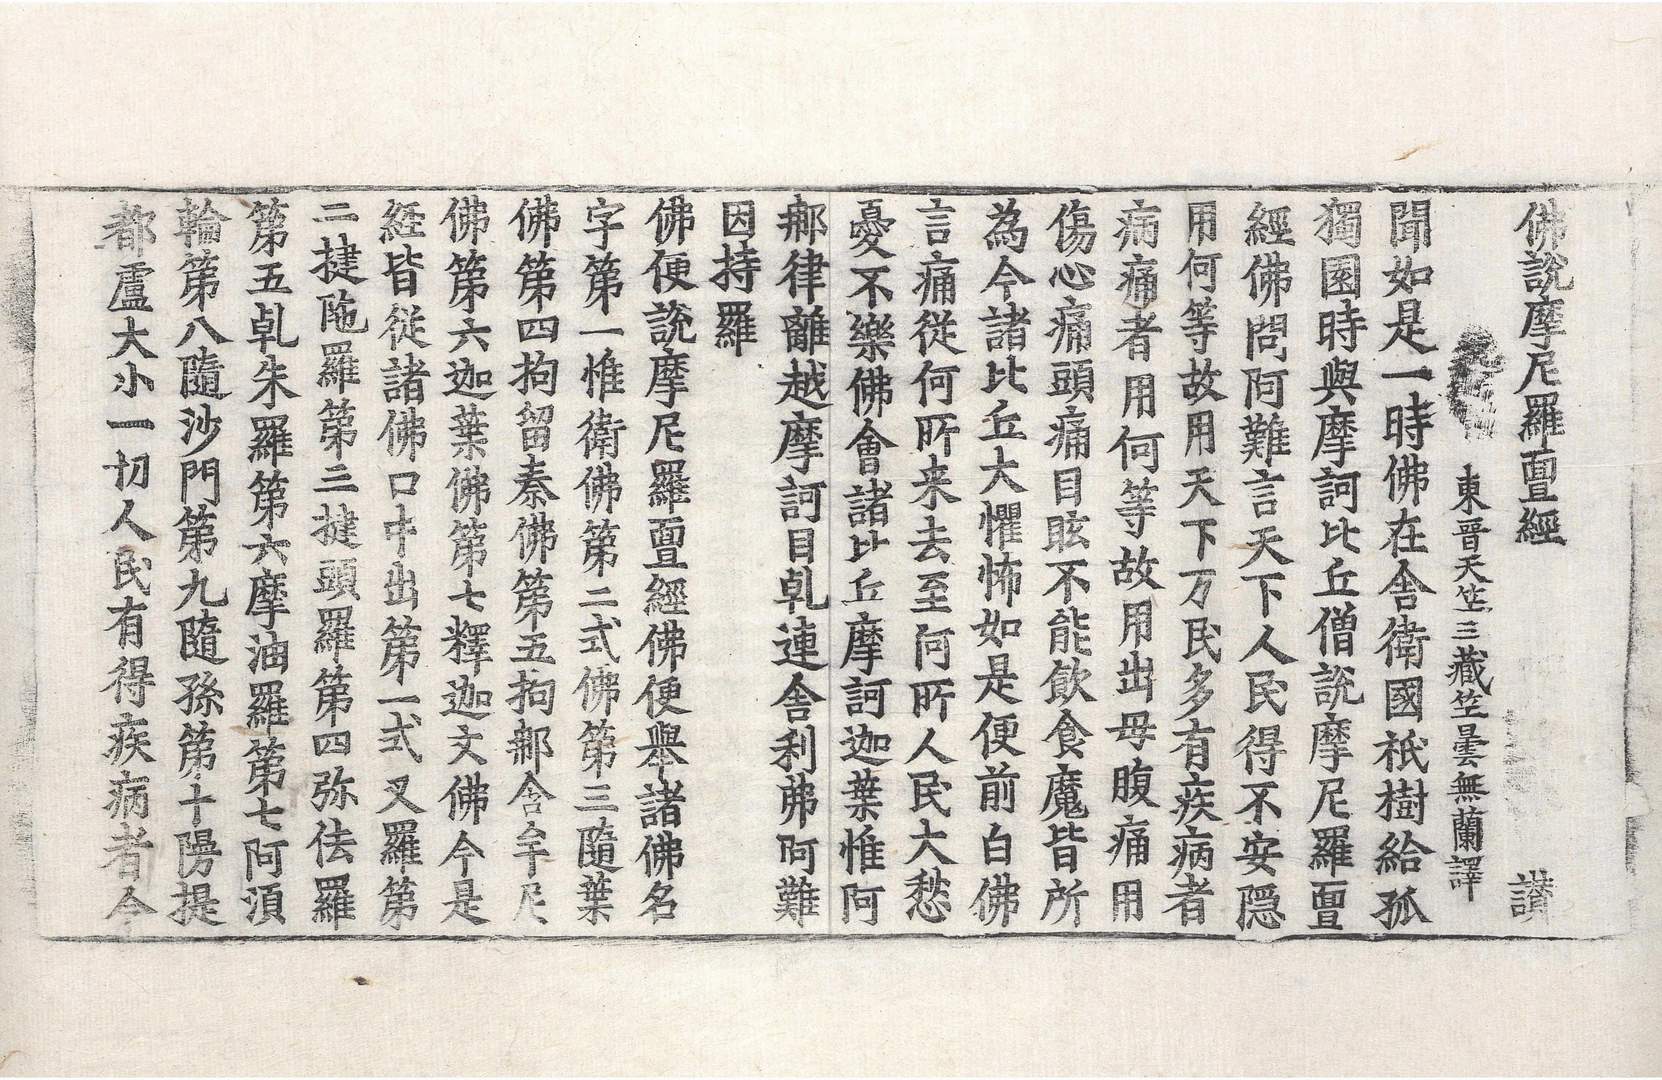 佛說摩尼羅亶經 讃
東晉天竺三藏竺曇無蘭譯
聞如是一時佛在舍衛國祇樹給孤
獨園時與摩訶比丘僧說摩尼羅亶
經佛問阿難言天下人民得不安隱
用何等故用天下万民多有疾病者
病痛者用何等故用出母腹痛用
傷心痛頭痛目眩不能飲食魔皆所
為今諸比丘大懼怖如是便前白佛
言痛從何所来去至何所人民大愁
憂不樂佛會諸比丘摩訶迦葉惟阿
郍律離越摩訶目乹連舍利弗阿難
因持羅
佛便說摩尼羅亶經佛便舉諸佛名
字第一惟衛佛第二式佛第三隨葉
佛第四拘留秦佛第五拘郍含牟尼
佛第六迦葉佛第七釋迦文佛今是
経皆從諸佛口中出第一式叉羅第
二揵陁羅第三揵頭羅第四弥佉羅
第五乹朱羅第六摩油羅第七阿湏
輪第八隨沙門第九隨孫第十隝提
都盧大小一切人民有得疾病者今